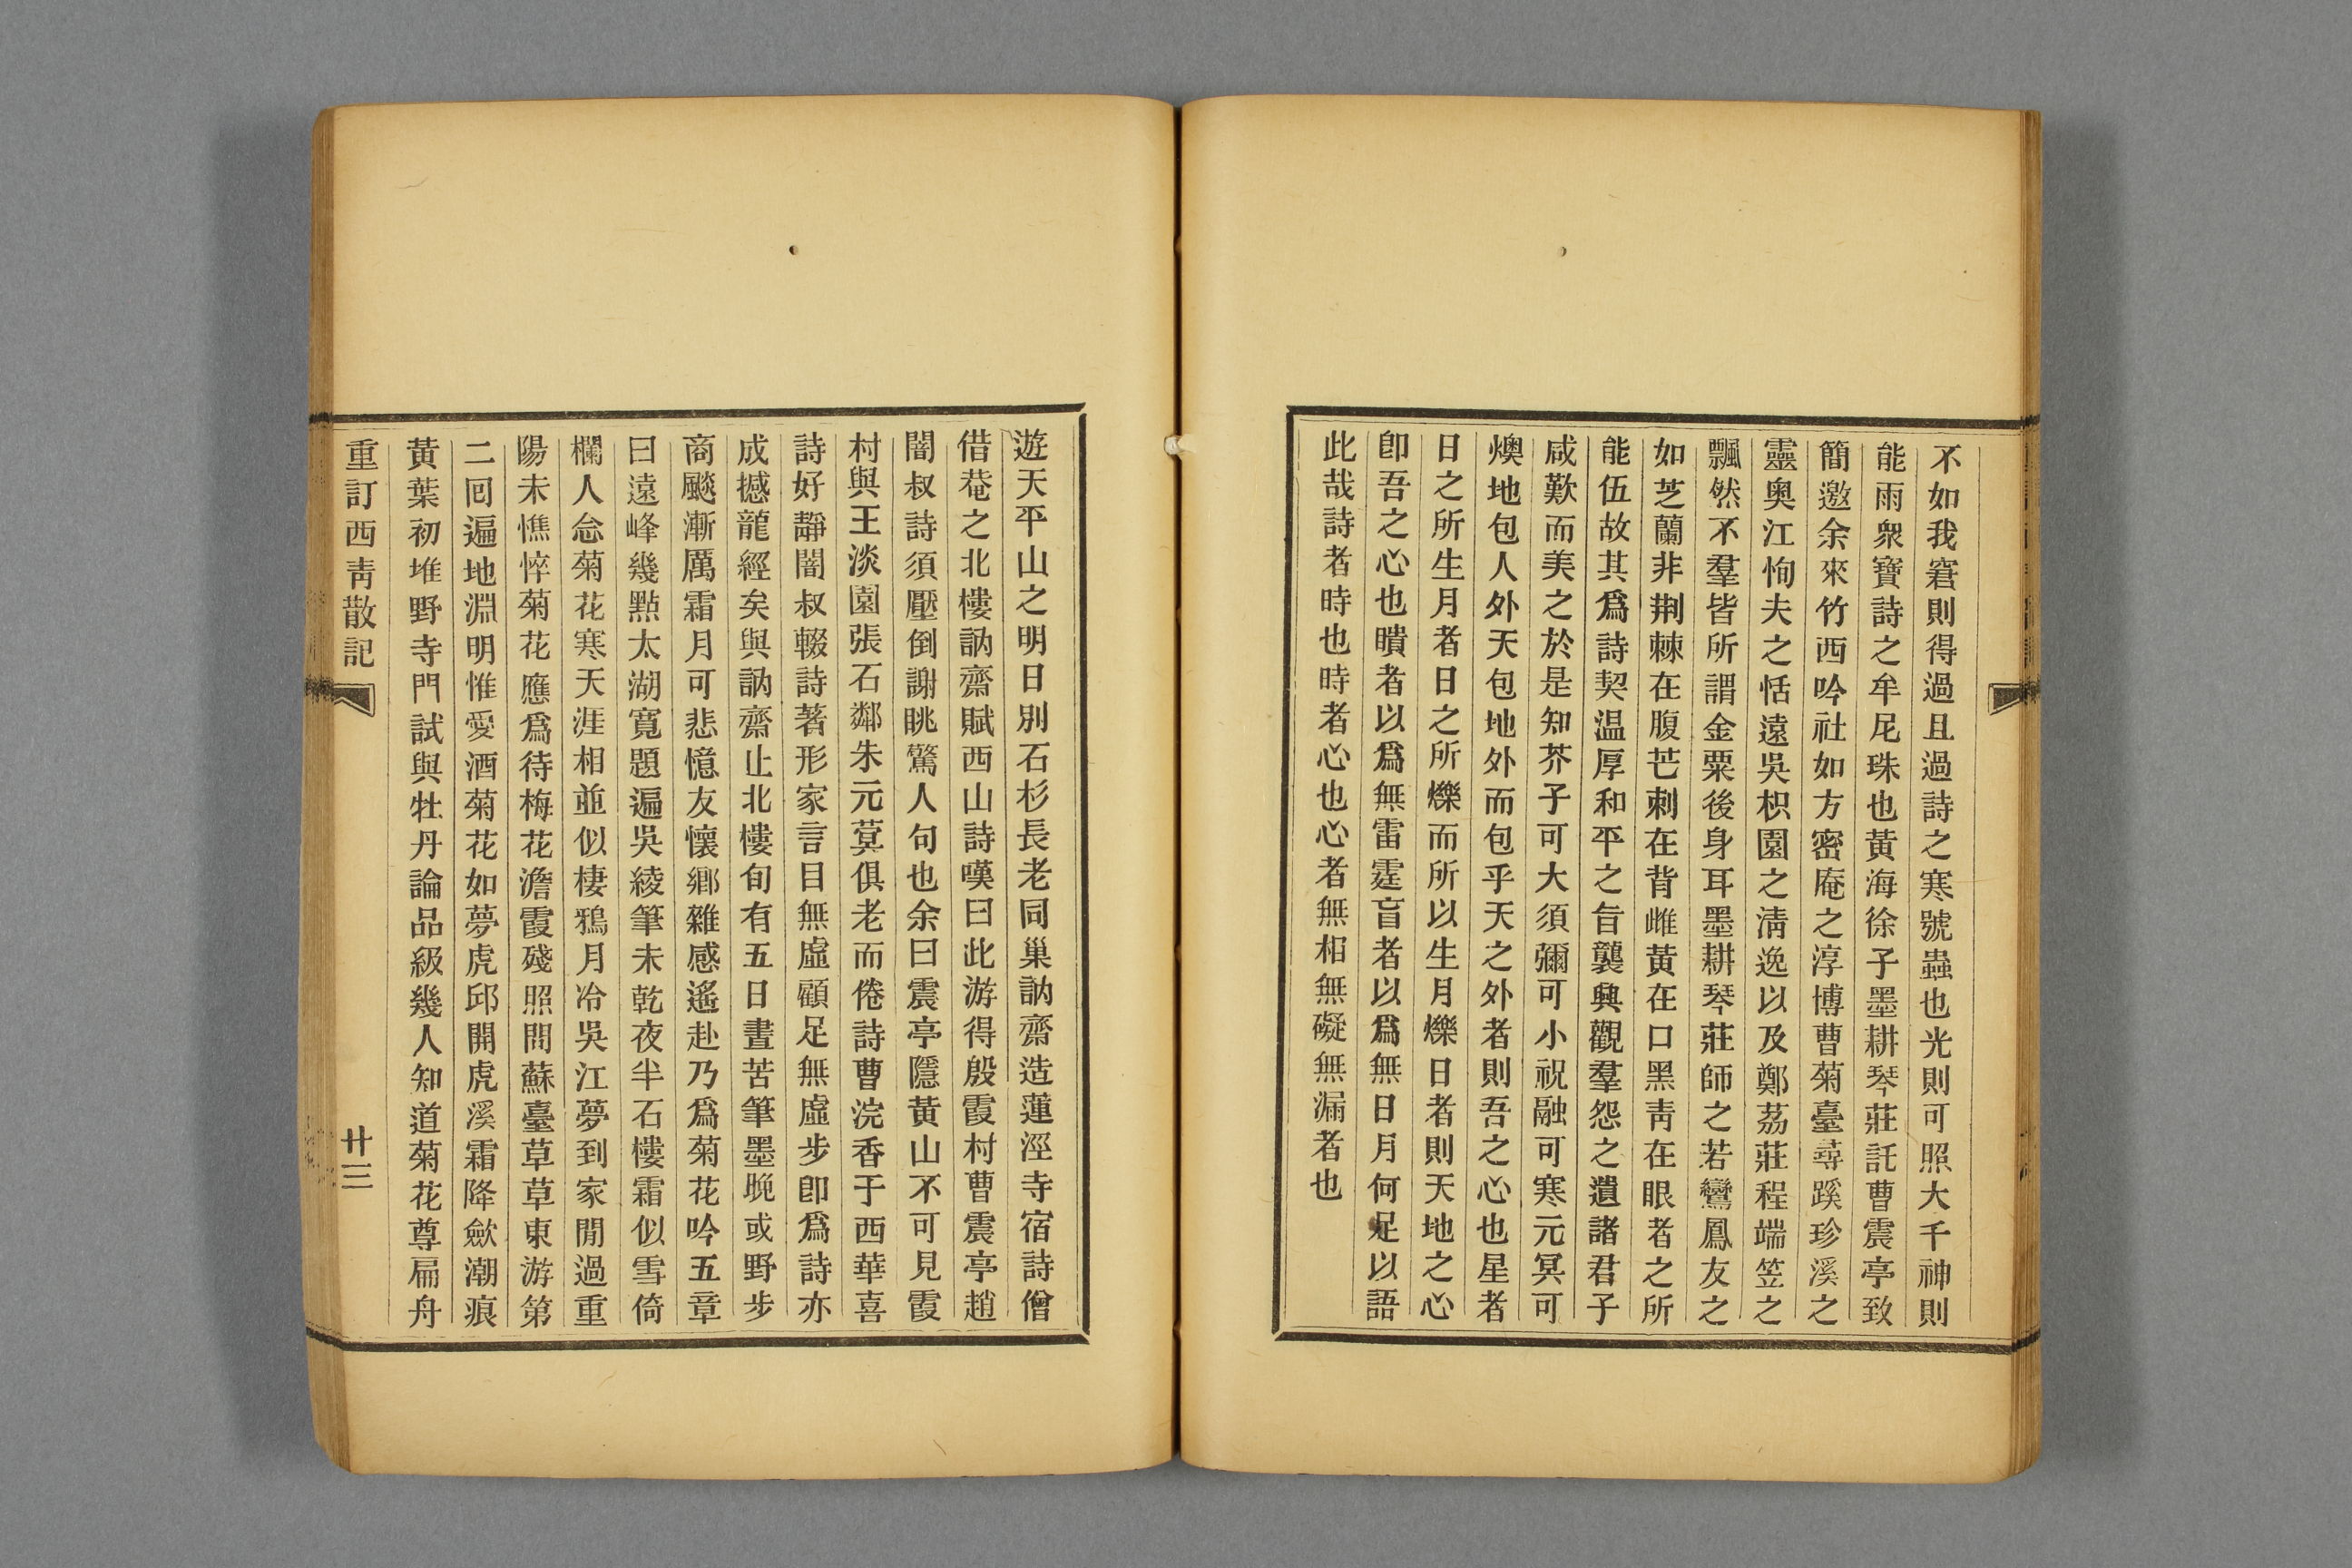 不如我窘則得過且過詩之寒號蟲也光則可照大千神則
能雨衆寶詩之牟尼珠也黃海徐子墨耕琴莊託曹震亭致
簡邀余來竹西吟社如方密庵之淳博曹菊臺蕁蹊珍溪之
靈奧江恂夫之恬遠吳枳園之淸逸以及鄭荔莊程端笠之
飄然不羣皆所謂金粟後身耳墨耕琴莊師之若鸞鳳友之
如芝蘭非荆棘在腹芒刺在背雌黃在口黑靑在眼者之所
能伍故其爲詩契温厚和平之旨襲興觀羣怨之遺諸君子
咸歎而美之於是知芥子可大須彌可小祝融可寒元冥可
燠地包人外天包地外而包乎天之外者則吾之心也星者
日之所生月者日之所爍而所以生月爍日者則天地之心
卽吾之心也聵者以爲無雷霆盲者以爲無日月何足以語
此哉詩者時也時者心也心者無相無礙無漏者也
遊天平山之明日別石杉長老同巢訥齋造蓮涇寺宿詩僧
借菴之北樓訥齋賦西山詩嘆曰此游得殷霞村曹震亭趙
闇叔詩須壓倒謝眺驚人句也余曰震亭隱黃山不可見霞
村與王淡園張石鄰朱元蓂俱老而倦詩曹浣香于西華喜
詩好靜闇叔輟詩著形家言目無虛顧足無虛步卽爲詩亦
成撼龍經矣與訥齋止北樓旬有五日晝苦筆墨晚或野步
商颷漸厲霜月可悲憶友懷鄉雜感遙赴乃爲菊花吟五章
曰遠峰幾點太湖寬題遍吳綾筆未乾夜半石樓霜似雪倚
欄人念菊花寒天涯相並似棲鴉月冷吳江夢到家閒過重
陽未憔悴菊花應爲待梅花澹霞殘照問蘇臺草草東游第
二回遍地淵明惟愛酒菊花如夢虎邱開虎溪霜降歛潮痕
黃葉初堆野寺門試與牡丹論品級幾人知道菊花尊扁舟
重訂西靑散記
廿三